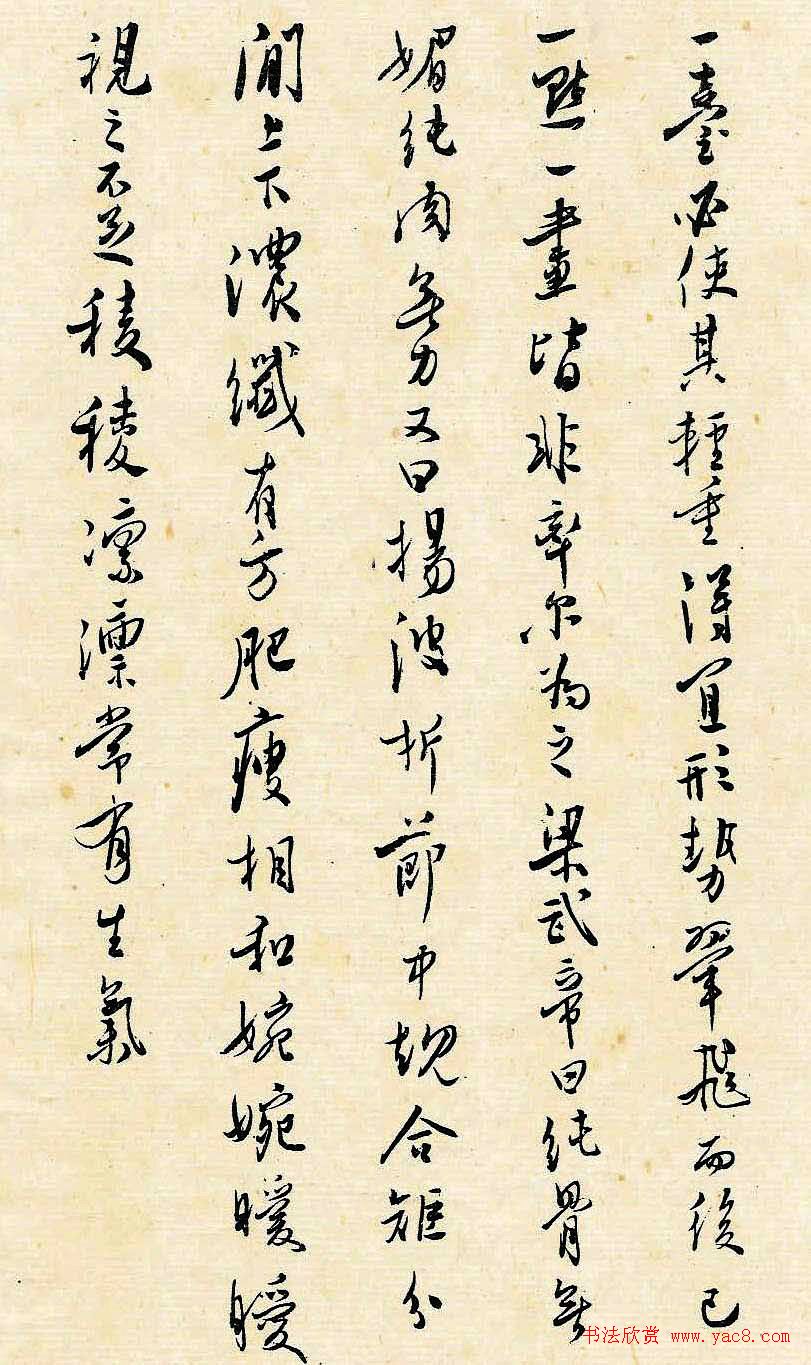 一臺必使其輕重得宜形勢翚飛而後已
一點一畫皆非率尔為之梁武帝曰純骨無
媚純肉無力又曰揚波折節中規合矩分
間上下濃纖有方肥瘦相和婉婉曖曖
視之不足稜稜凛凛常有生氣
书法欣赏 www.yac8.com